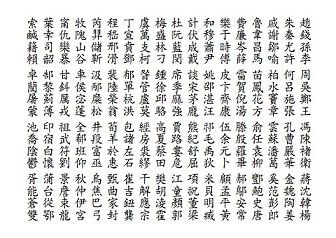 趙錢孫李周吳鄭王馮陳褚衛蔣沈韓楊
朱秦尤許何呂施張孔曹嚴華金魏陶姜
戚謝鄒喻柏水竇章雲蘇潘葛奚范彭郎
魯韋昌馬苗鳳花方俞任袁柳酆鮑史唐
費廉岑薛雷賀倪湯滕殷羅畢郝鄔安常
樂于時傅皮卞齊康伍余元卜顧孟平黃
和穆蕭尹姚邵湛汪祁毛禹狄米貝明臧
計伏成戴談宋茅龐熊紀舒屈項祝董梁
杜阮藍閔席季麻強賈路婁危江童顏郭
梅盛林刁鍾徐邱駱高夏蔡田樊胡凌霍
虞萬支柯昝管盧莫經房裘繆干解應宗
丁宣賁鄧郁單杭洪包諸左石崔吉鈕龔
程嵇邢滑裴陸榮翁荀羊於惠甄曲家封
芮羿儲靳汲邴糜松井段富巫烏焦巴弓
牧隗山谷車侯宓蓬全郗班仰秋仲伊宮
甯仇欒暴甘鈄厲戎祖武符劉景詹束龍
葉幸司韶郜黎薊薄印宿白懷蒲邰從鄂
索咸籍賴卓藺屠蒙池喬陰鬱胥能蒼雙